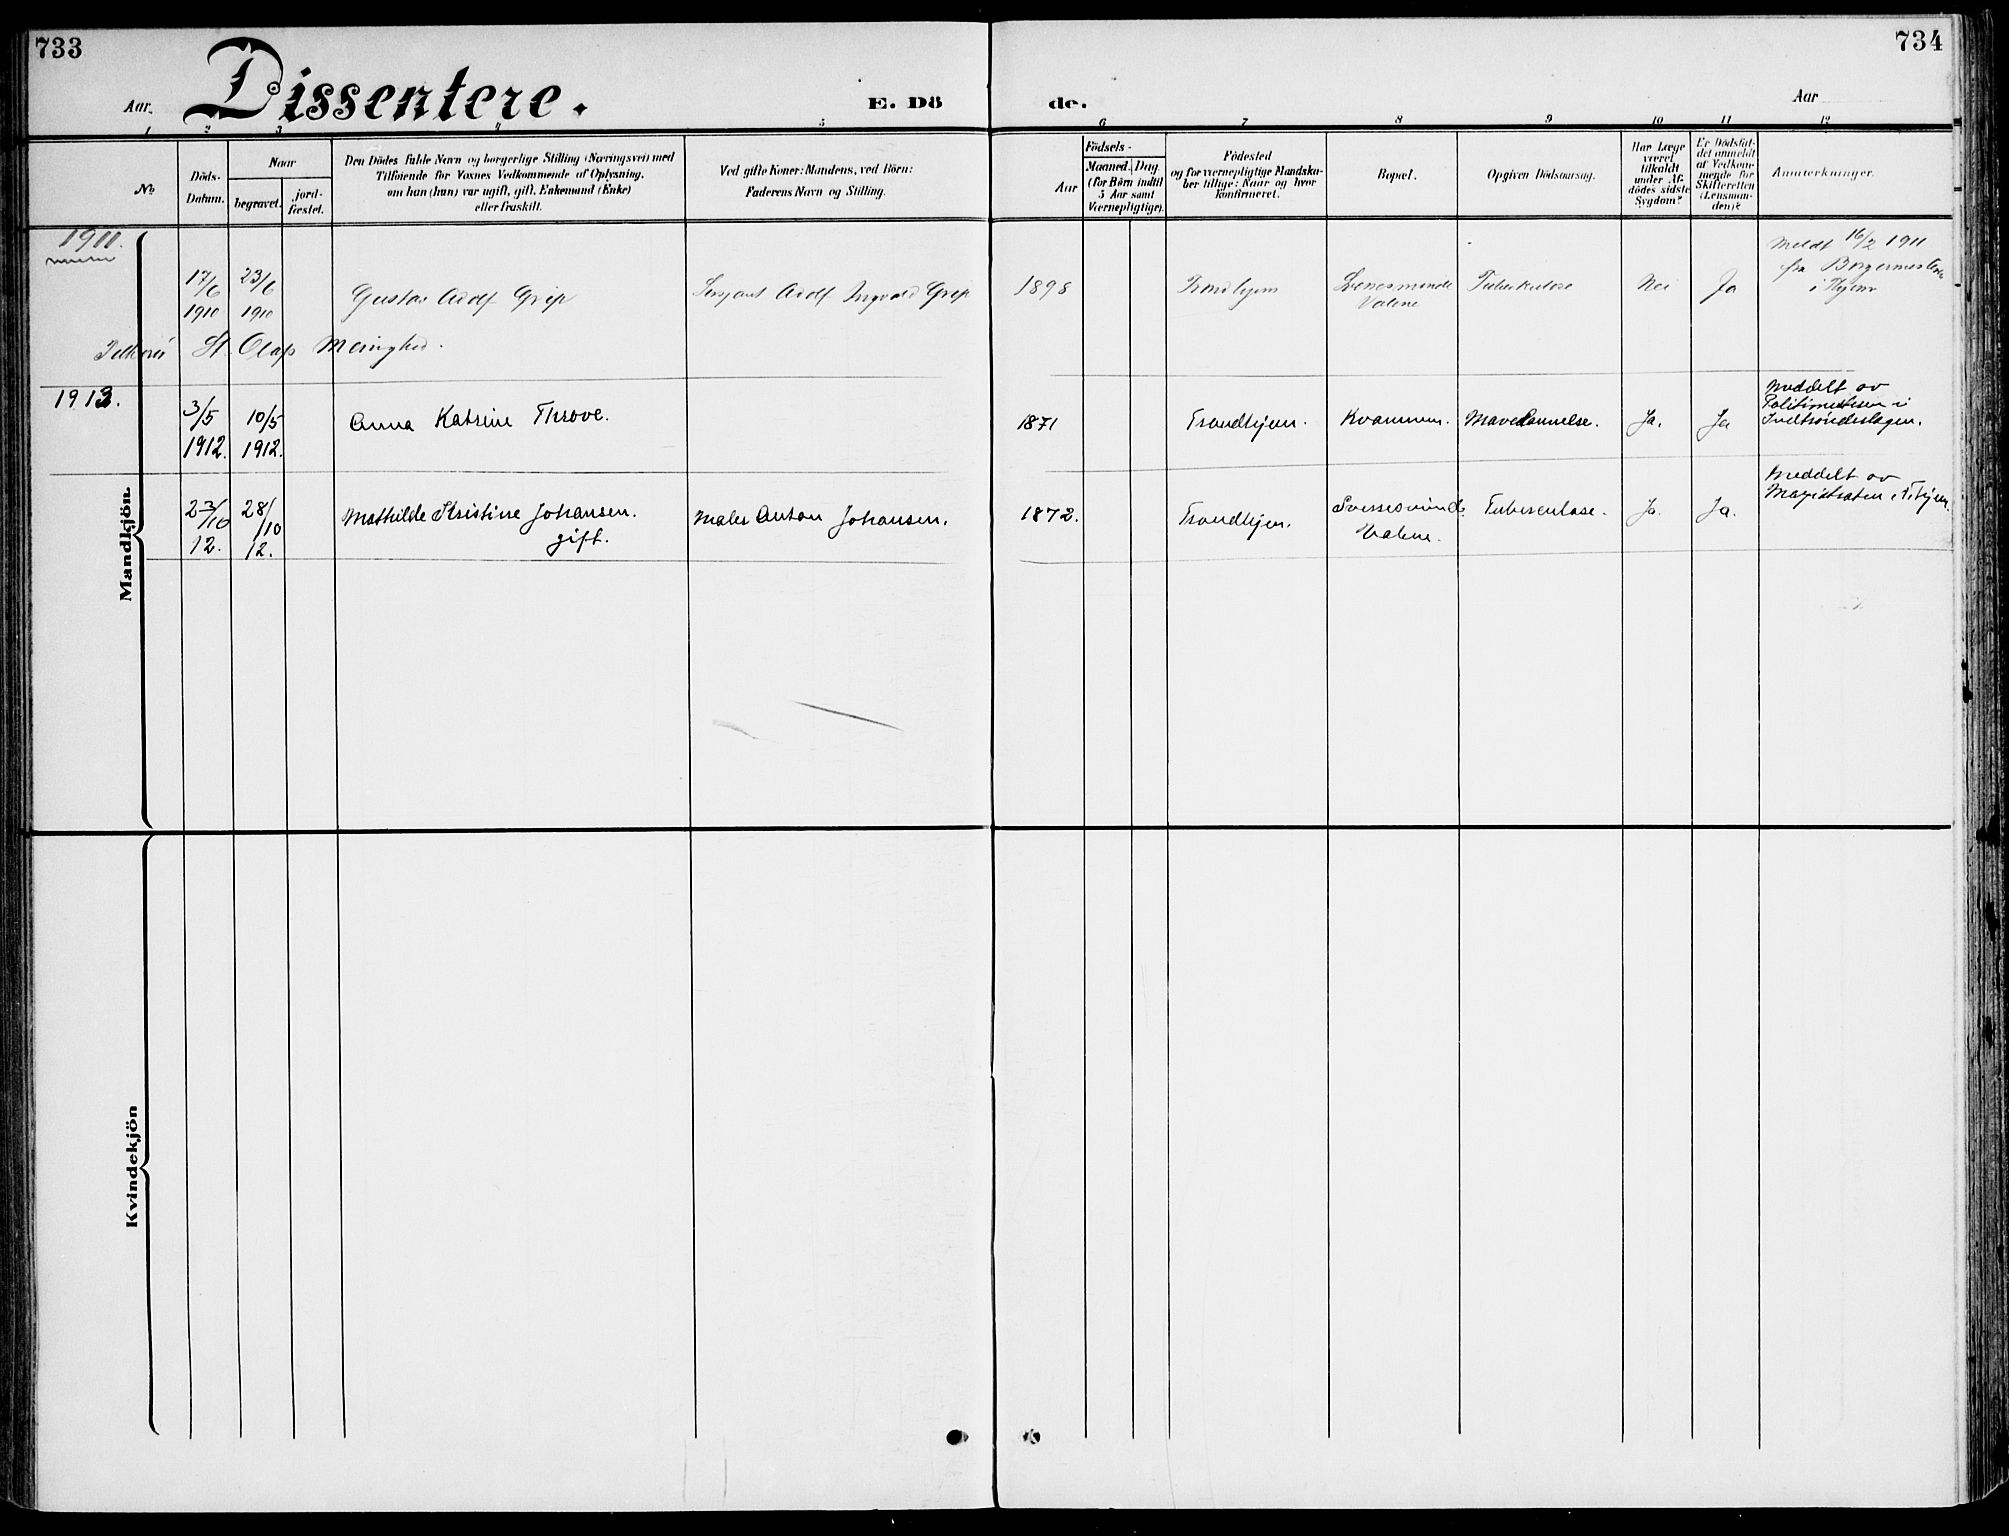 733
734
Aar
Dissentere.
E. Dö
de.
Aar
1 2 3 4 5 6 7 8 9 10 11 12
No
Döds-
Datum.
Naar
begravet.
jord-
fæstet.
Den Dödes fulde Navn og borgerlige Stilling (Næringsvei) med
Tilföiende for Voxnes Vedkommende af Oplysning,
om han (hun) var ugift, gift, Enkemand (Enke)
eller fraskilt.
Ved gifte Koner: Mandens, ved Börn:
Faderens Navn og Stilling.
Födsels-
Aar
Maaned. Dag.
(for Börn indtil
5 Aar samt
Værnepligtige).
Födested
og for værnepligtige Mandska-
ber tillige: Naar og hvor
konfirmeret.
Bopæl.
Opgiven Dödsaarsag.
Har Læge
været
tilkaldt
under Af-
dödes sidste
Sygdom?
Er Dödsfal-
det anmeldt
af Vedkom-
mende for
Skifteretten
(Lensman-
den)?
Anmærkninger.
1911.
17/6
1910
23/6
1910
Gustav Adolf Grip
Sersjant Adolf Ingvald Grip
1898
Trondhjem
Valene
Tuberkulose
Nei
Ja
Meldt 16/2 1911
fra Borgermesteren
i Thjem
St. Olafs Menighed.
1913.
3/5
1912.
10/5
1912.
Anna Katrine Throve.
1871
Trondhjem.
Kvammen.
Ja.
Ja
Meddelt av
Politimesteren i
Indtrøndelagen.
23/10
12.
28/10
12.
Mathilde Kristine Johansen.
gift.
Maler Anton Johansen.
1872.
Trondhjem.
Valene.
Tuberculose.
Ja.
Ja.
Meddelt av
Magistraten i T.hjem.
Mandkjön.
Kvindekjön